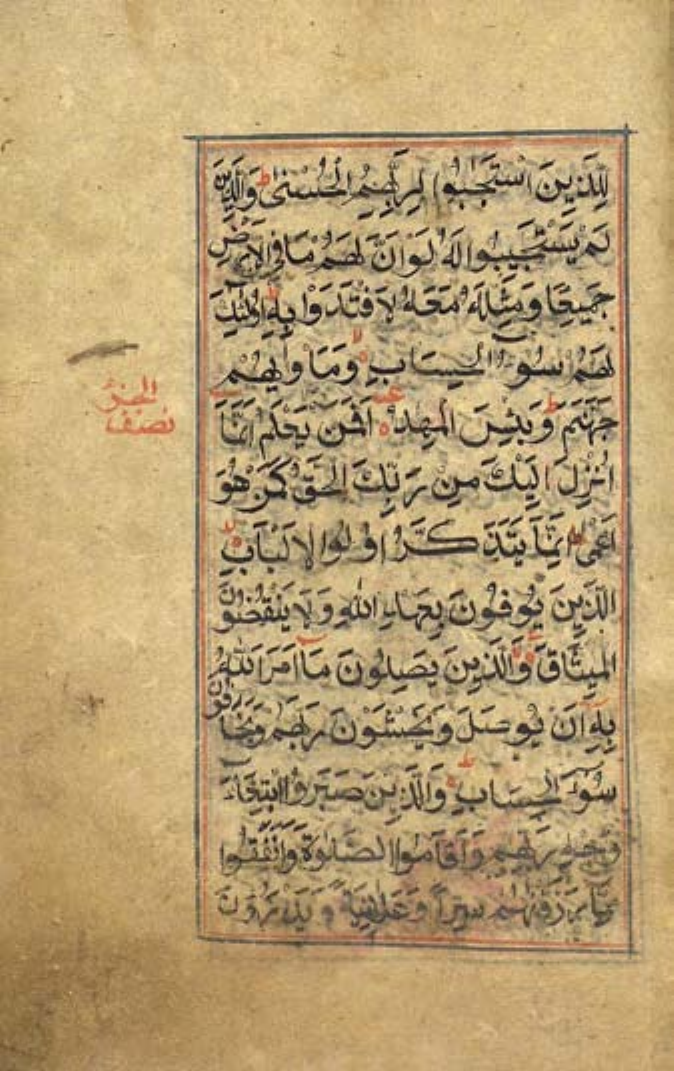 لِلَّذِينَ اسْتَجَابُوا لِرَبِّهِمُ الْحُسْنَىٰ ط وَالَّذِينَ
لَمْ يَسْتَجِيبُوا لَهُ لَوْ أَنَّ لَهُمْ مَا فِي الْأَرْضِ
جَمِيعًا وَمِثْلَهُ مَعَهُ لَافْتَدَوْا بِهِ أُولَٰئِكَ
لَهُمْ سُوءُ الْحِسَابِ وَمَأْوَاهُمْ
جَهَنَّمُ ط وَبِئْسَ الْمِهَادُ أَفَمَنْ يَعْلَمُ أَنَّمَا
أُنْزِلَ إِلَيْكَ مِنْ رَبِّكَ الْحَقُّ كَمَنْ هُوَ
أَعْمَىٰ ط إِنَّمَا يَتَذَكَّرُ أُولُوا الْأَلْبَابِ
الَّذِينَ يُوفُونَ بِعَهْدِ اللَّهِ وَلَا يَنْقُضُونَ
الْمِيثَاقَ وَالَّذِينَ يَصِلُونَ مَا أَمَرَ اللَّهُ
بِهِ أَنْ يُوصَلَ وَيَخْشَوْنَ رَبَّهُمْ وَيَخَافُونَ
سُوءَ الْحِسَابِ ط وَالَّذِينَ صَبَرُوا ابْتِغَاءَ
وَجْهِ رَبِّهِمْ وَأَقَامُوا الصَّلَوٰةَ وَأَنْفَقُوا
مِمَّا رَزَقْنَاهُمْ سِرًّا وَعَلَانِيَةً وَيَدْرَؤُونَ
الجزؤ
نصف